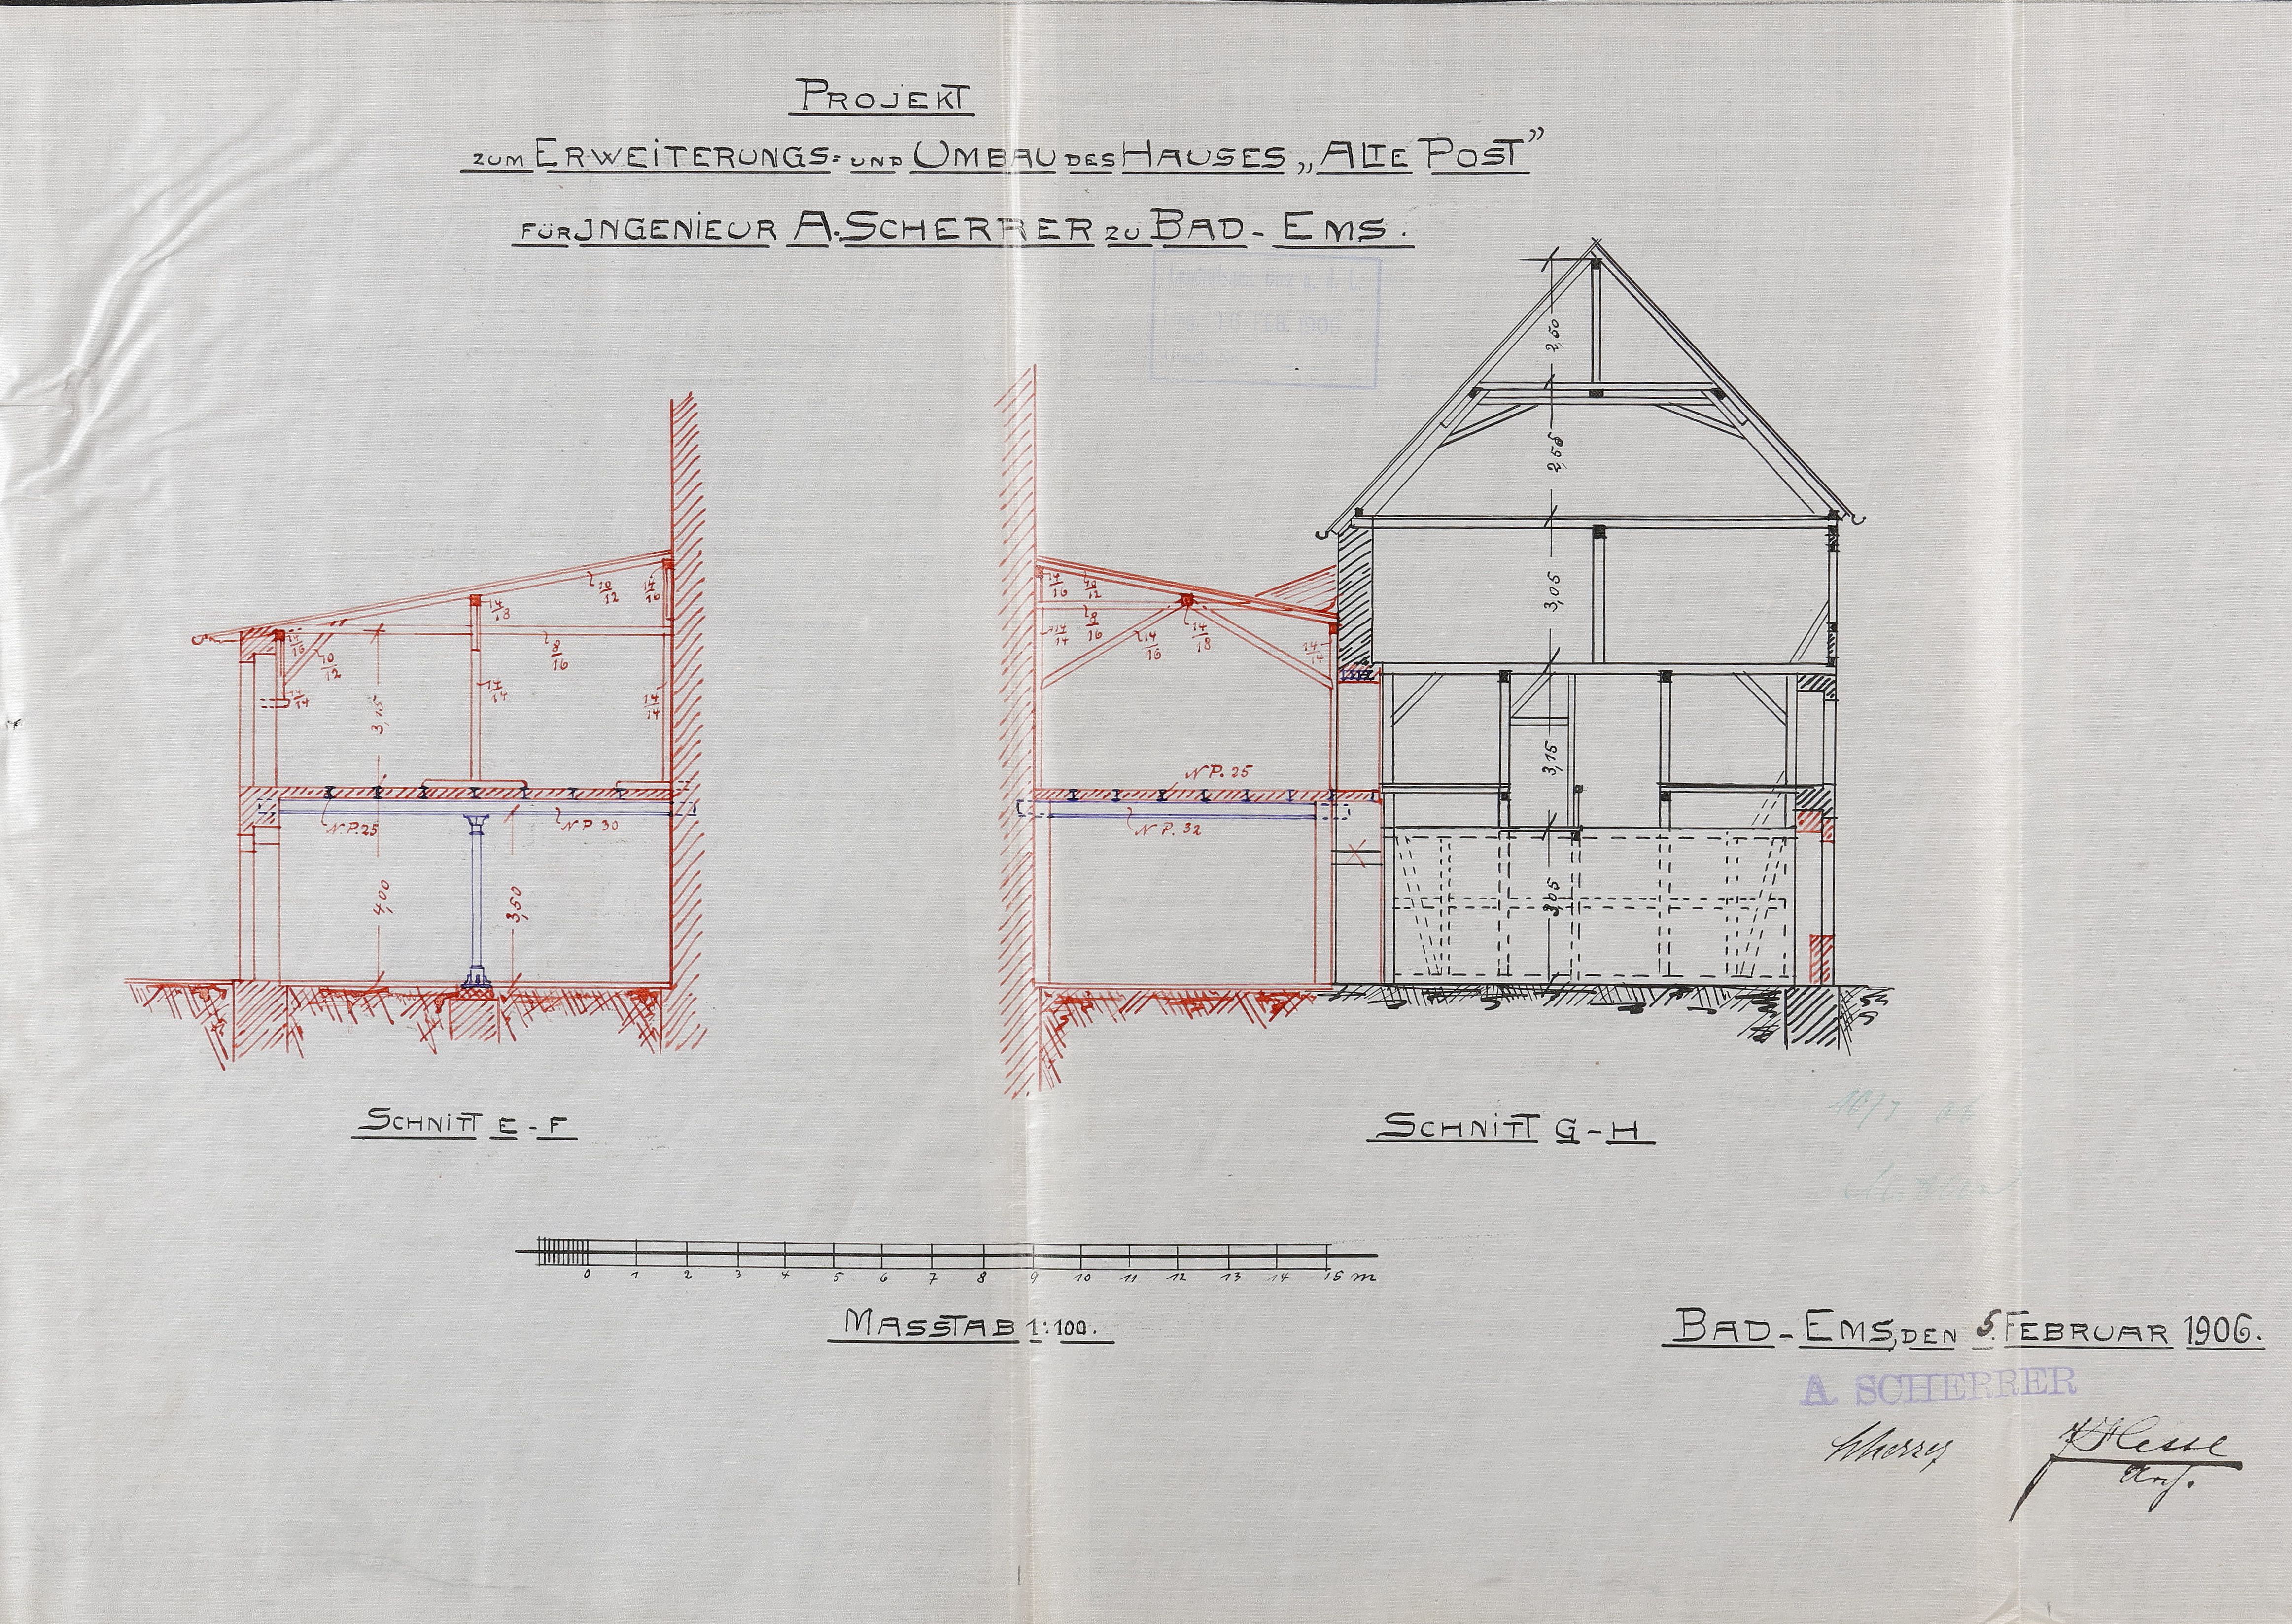 PROJEKT
ZUM ERWEITERUNGS= UND UMBAU DES HAUSES „ALTE POST”
FÜR INGENIEUR A. SCHERRER ZU BAD-EMS.
16. FEB. 1906
2,50
2,56
3,05
3,15
3,05
10/12
14/16
14/18
14/16
10/12
8/16
14/14
14/14
14/14
3,15
N.P. 25
N P 30
4,00
3,50
14/16
10/12
8/16
14/14
14/16
14/18
14/14
N P. 25
N P. 32
SCHNITT E-F
SCHNITT G-H
0 1 2 3 4 5 6 7 8 9 10 11 12 13 14 15 m
MASSTAB 1:100.
BAD-EMS, DEN 5. FEBRUAR 1906.
A. SCHERRER
Scherrer
Hesse
Arch.